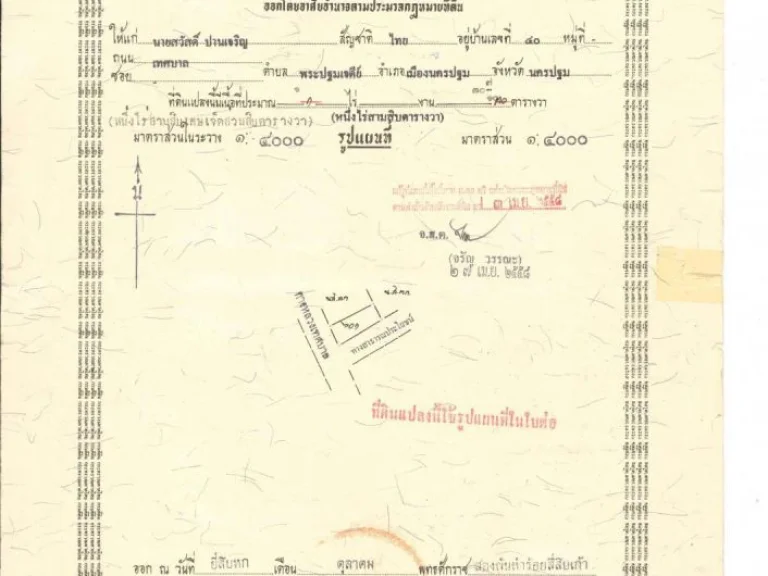 ออกโดยอาศัยอำนาจตามประมวลกฎหมายที่ดิน
ให้แก่ นายสวัสดิ์ ปานเจริญ สัญชาติ ไทย อยู่บ้านเลขที่ ๔๐ หมู่ที่ -
ถนน เทศบาล
ซอย ตำบล พระปฐมเจดีย์ อำเภอ เมืองนครปฐม จังหวัด นครปฐม
ที่ดินแปลงนี้มีเนื้อที่ประมาณ ๑ ไร่ - งาน ๓๐ ตารางวา
(หนึ่งไร่สามสิบตารางวา)
มาตราส่วนในระวาง ๑:๔๐๐๐ รูปแผนที่ มาตราส่วน ๑:๔๐๐๐
น
๓ เม.ย. ๒๕๕๘
อ.ส.ค.
(จรัญ วรรณะ)
๒๗ เม.ย. ๒๕๕๘
น.ส.๓ก
ทางหลวงเทศบาล
ทางสาธารณประโยชน์
ที่ดินแปลงนี้ใช้รูปแผนที่ในใบต่อ
ออก ณ วันที่ ยี่สิบหก เดือน ตุลาคม พุทธศักราช สองพันห้าร้อยสี่สิบเก้า